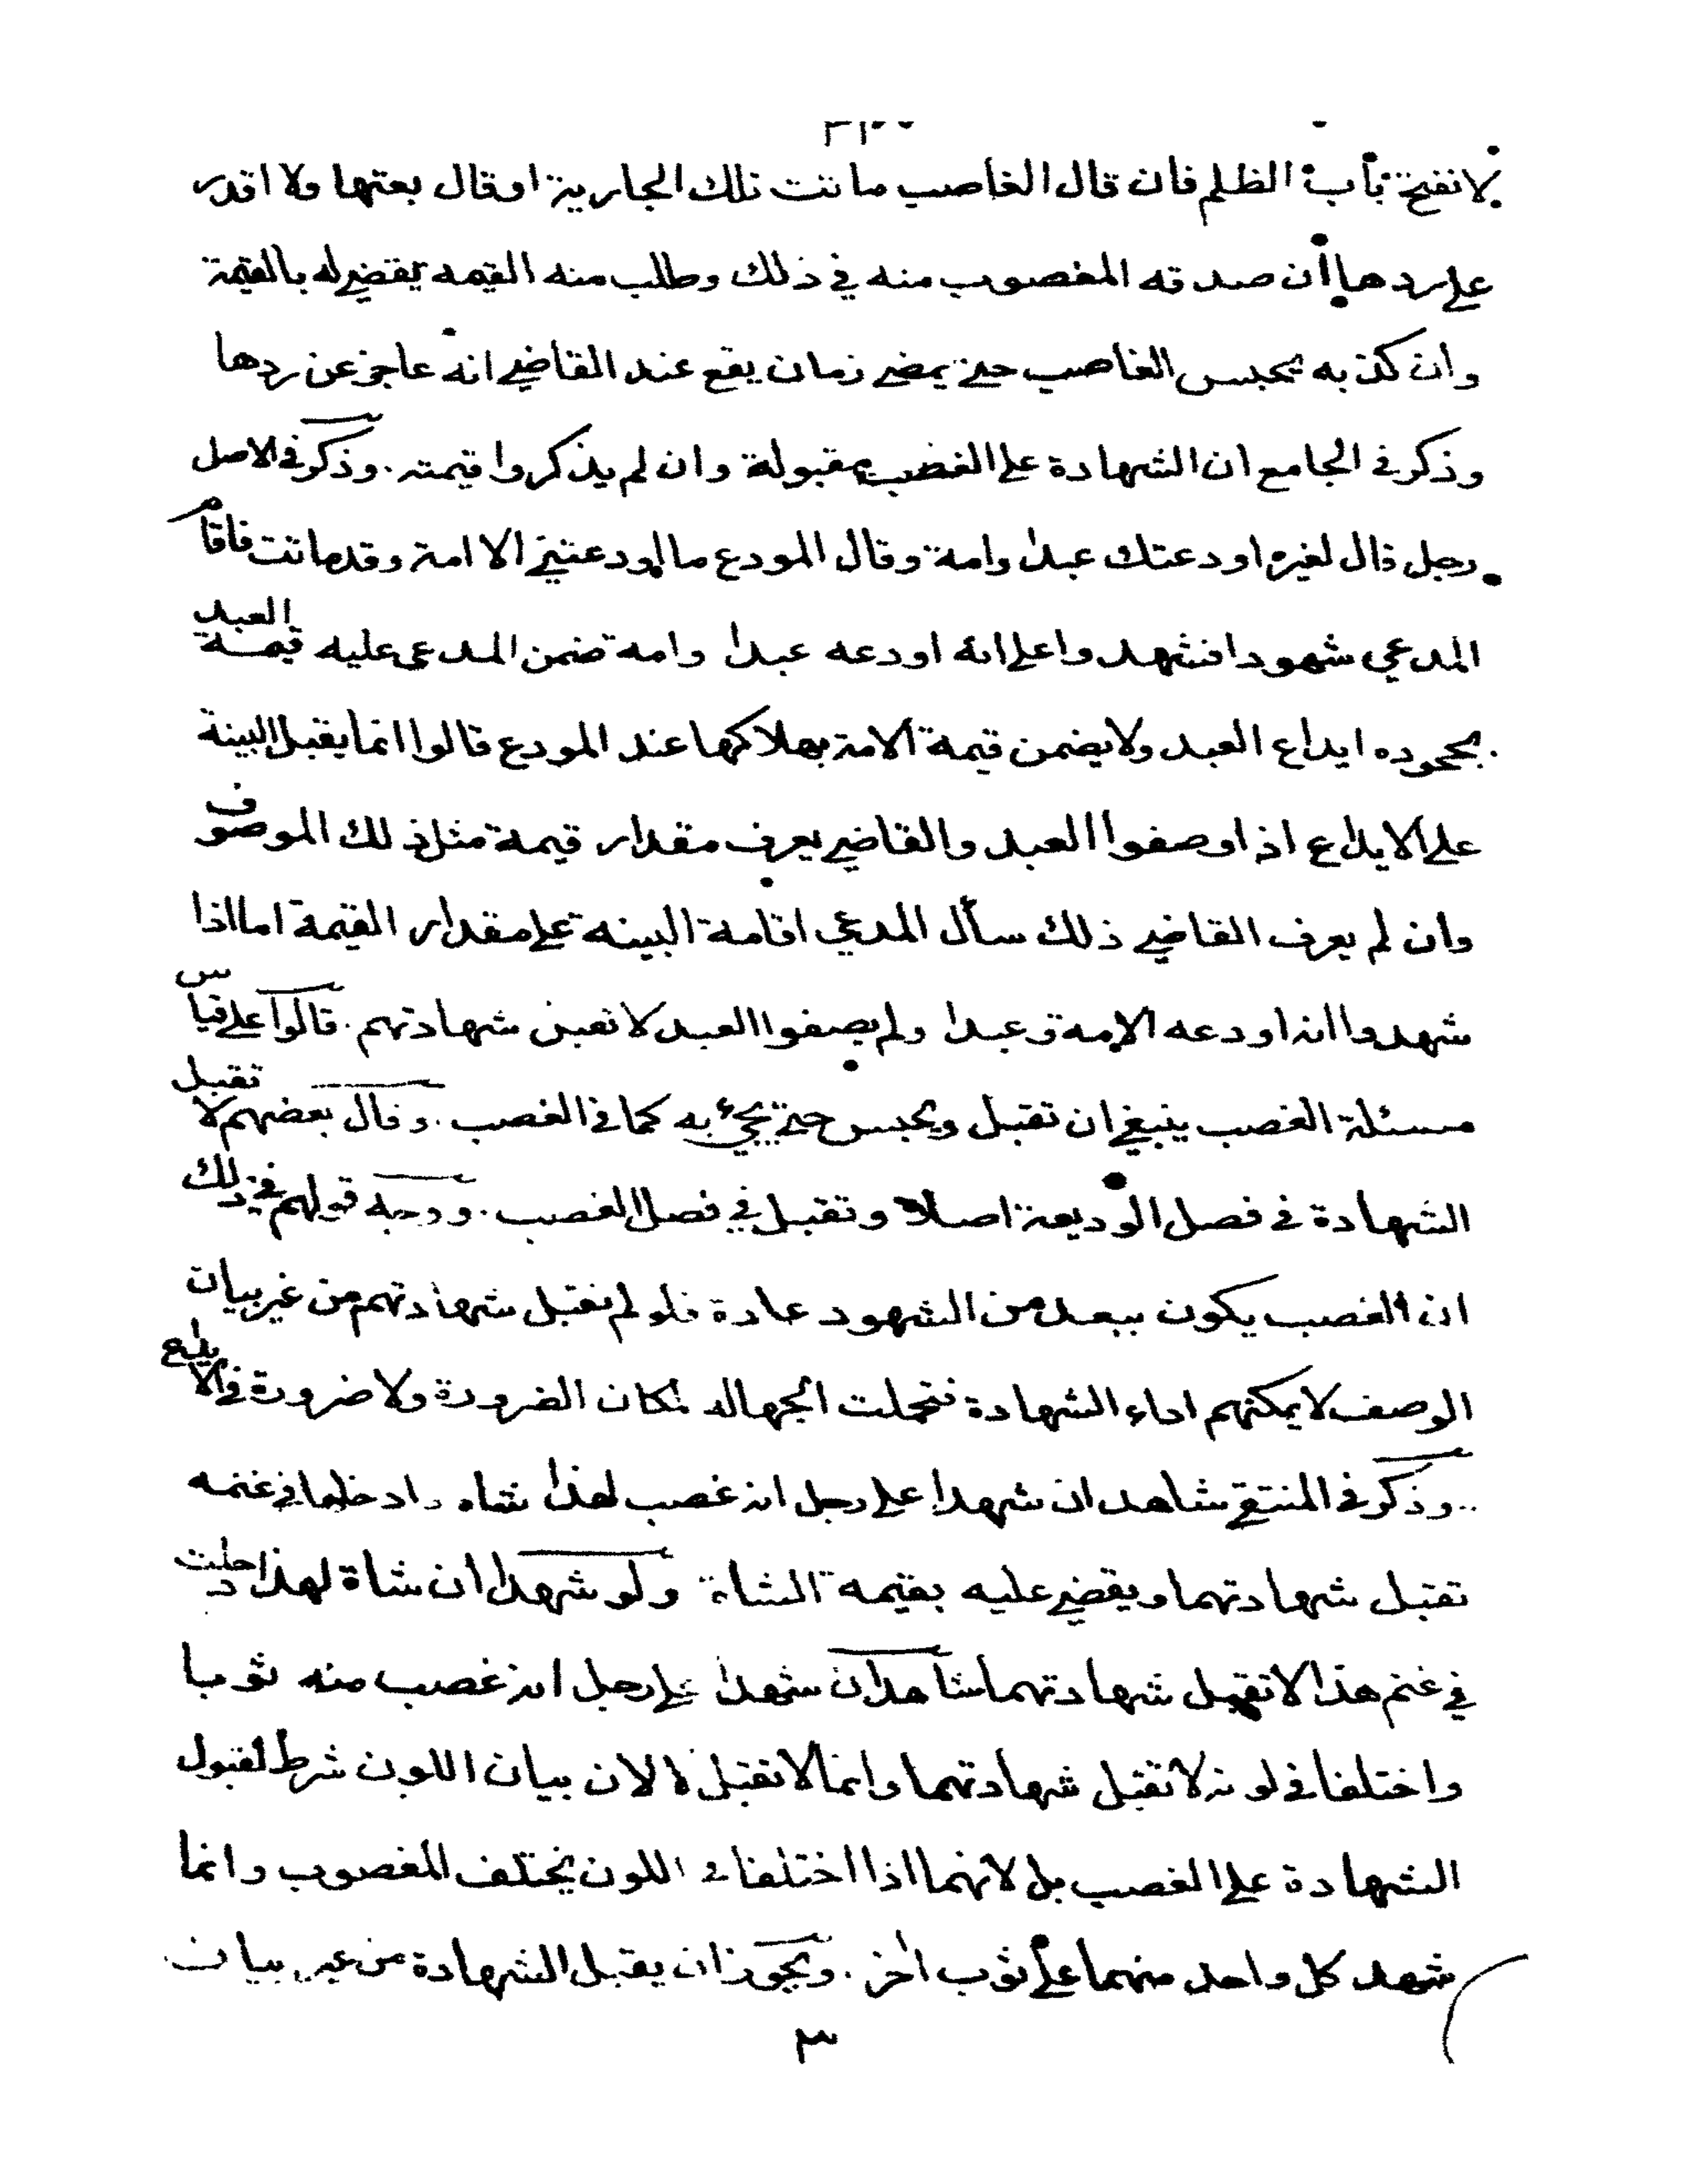 لانفتح باب الظلم فان قال الغاصب ماتت تلك الجارية او قال بعتها ولا اقدر
على ردها ان صدقه المغصوب منه في ذلك وطلب منه القيمه يقضي له بالقيمة
وان كذبه يحبس الغاصب حتى يمضي زمان يقع عند القاضي انه عاجز عن ردها
وذكر في الجامع ان الشهادة على الغصب مقبولة وان لم يذكروا قيمته . وذكر في الاصل
رجل قال لغيره اودعتك عبدا وامة وقال المودع ما اودعتني الا امة وقد ماتت فاقام
المدعي شهودا فشهدوا على انه اودعه عبدا وامة ضمن المدعى عليه قيمة العبد
بجحوده ايداع العبد ولا يضمن قيمة الامة بهلاكها عند المودع قالوا انما يقبل البينة
على الايداع اذا وصفوا العبد والقاضي يعرف مقدار قيمة مثل ذلك الموصوف
وان لم يعرف القاضي ذلك سأل المدعي اقامة البينة على مقدار القيمة اما اذا
شهدوا انه اودعه الامة وعبدا ولم يصفوا العبد لا تقبل شهادتهم . قالوا على قياس
مسئلة الغصب ينبغي ان تقبل ويحبس حتى يجيء به كما في الغصب . وقال بعضهم لا تقبل
الشهادة في فصل الوديعة اصلا وتقبل في فصل الغصب . ووجه قولهم في ذلك
ان الغصب يكون ببعد من الشهود عادة فلو لم تقبل شهادتهم من غير بيان
الوصف لا يمكنهم اداء الشهادة فتحملت الجهالة لمكان الضرورة ولا ضرورة في الايداع
.. وذكر في المنتقى شاهدان شهدا على رجل انه غصب لهذا شاه وادخلها في غنمه
تقبل شهادتهما ويقضي عليه بقيمة الشاة ولو شهدا ان شاة لهذا دخلت
في غنم هذا لا تقبل شهادتهما شاهدان شهدا على رجل انه غصب منه ثوبا
واختلفا في لونه لا تقبل شهادتهما وانما لا تقبل لا لان بيان اللون شرط لقبول
الشهادة على الغصب بل لانهما اذا اختلفا في اللون يختلف المغصوب وانما
شهد كل واحد منهما على ثوب اخر . ويجوز ان يقبل الشهادة من غير بيان
٣